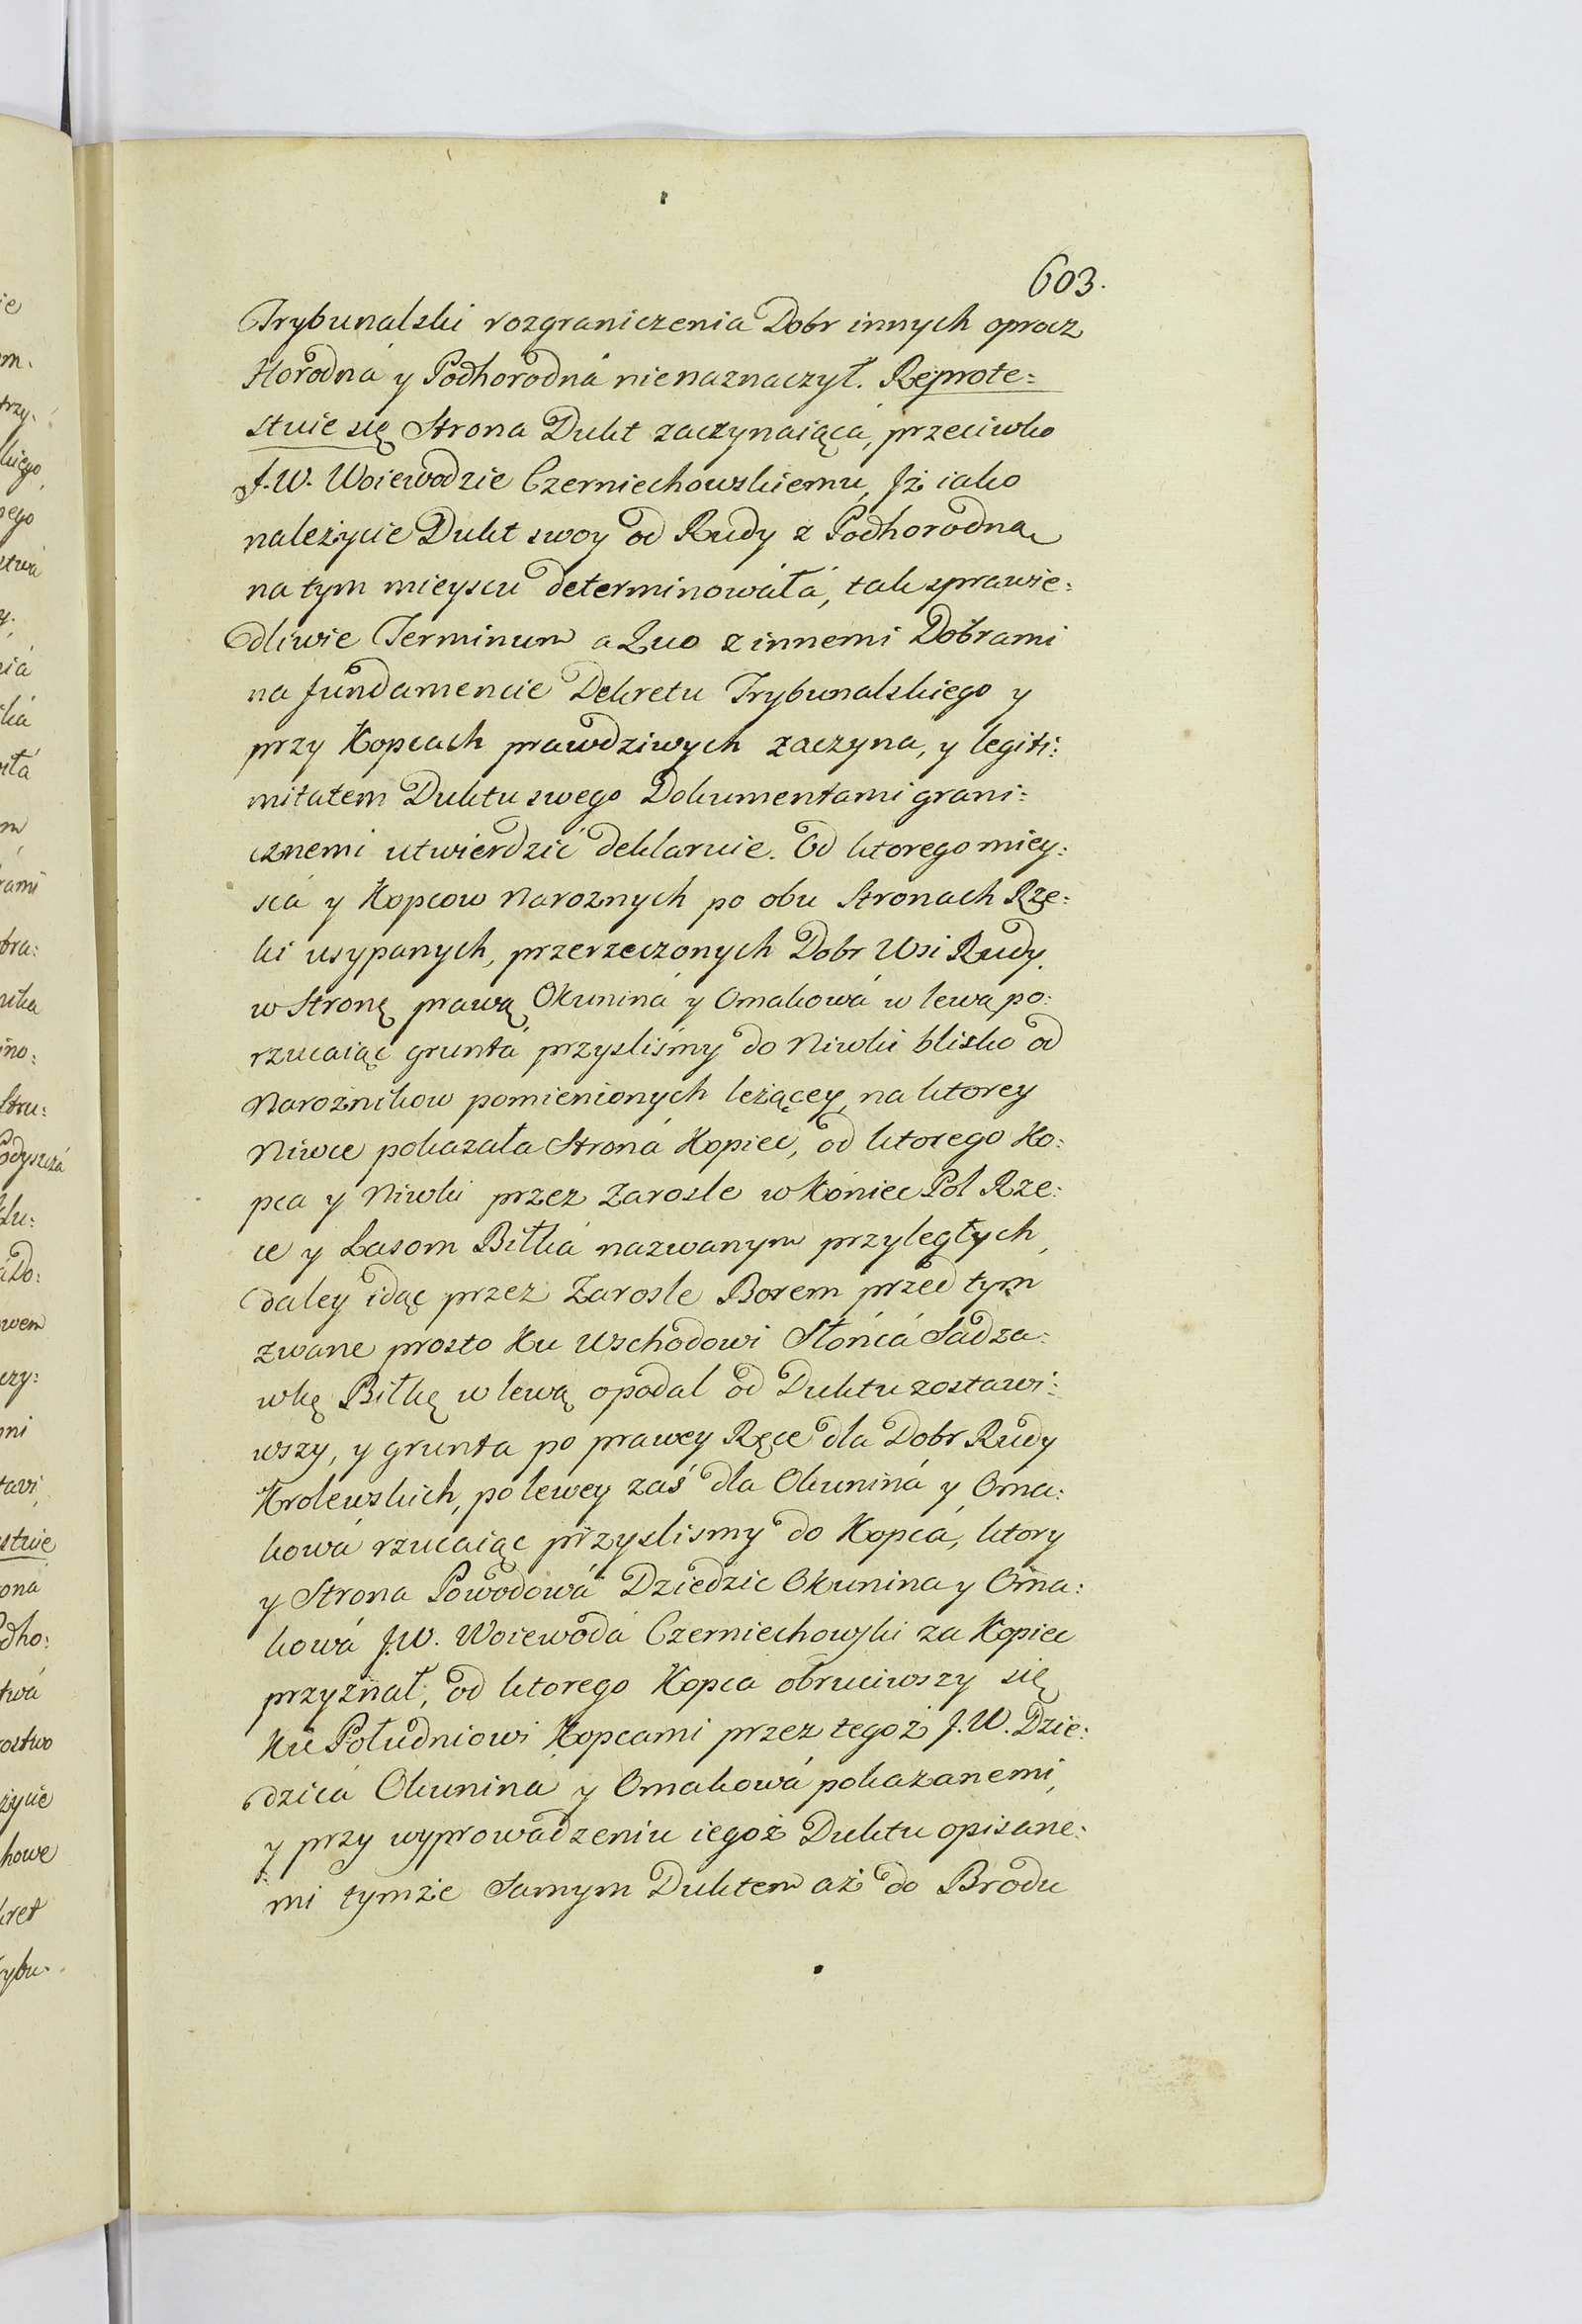 603.
Trybunalski rozgraniczenia Dobr innych oprocz
Horodná y Podhorodná nienaznaczył. Reprote=
stuie się Strona Dukt zaczynaiącá, przeciwko
J.W. Woiewodzie Czerniechowskiemu, Jż iako
należycie Dukt swoy od Rudy z Podhorodną
na tym mieyscu determinowáłá, tak sprawie=
dliwie Terminum a Quo z innemi Dobrami
na fundamencie Dekretu Trybunalskiego y
przy Kopcach prawdziwych zaczyna, y legiti=
mitatem Duktu swego Dokumentami grani=
cznemi utwierdzić deklaruie. Od ktorego miey=
scá y Kopcow Naroznych po obu Stronach Rze=
ki usypanych, przerzeczonych Dobr Wsi Rudy
w Stronę prawą Okuniná y Omakowá w lewą po=
rzucaiąc gruntá przysliśmy do Niwki blisko od
Narożnikow pomienionych leżącey, na ktorey
Niwce pokazała Stroná Kopiec, od ktorego Ko=
pca y Niwki przez Zarosle w Koniec Pol Rze=
ce y Lasom Biłká nazwanym przyległych,
daley idąc przez Zarosle Borem przed tym
zwane prosto Ku Wschodowi Słońcá Sadza=
wkę Biłkę w lewą opodal od Duktu zostawi=
wszy, y grunta po prawey Ręce dla Dobr Rudy
Krolewskich, po lewey zaś dla Okuniná y Oma=
kowá rzucaiąc przyslismy do Kopcá, ktory
y Strona Powodowá Dziedzic Okunina y Oma=
kowá J.W. Woiewodá Czerniechowski za Kopiec
przyznał, od ktorego Kopca obruciwszy się
Ku Południowi Kopcami przez tegoż J.W. Dzie=
dzicá Okunina y Omakowá pokazanemi,
y przy wyprowadzeniu iegoż Duktu opisane=
mi tymże Samym Duktem aż do Brodu